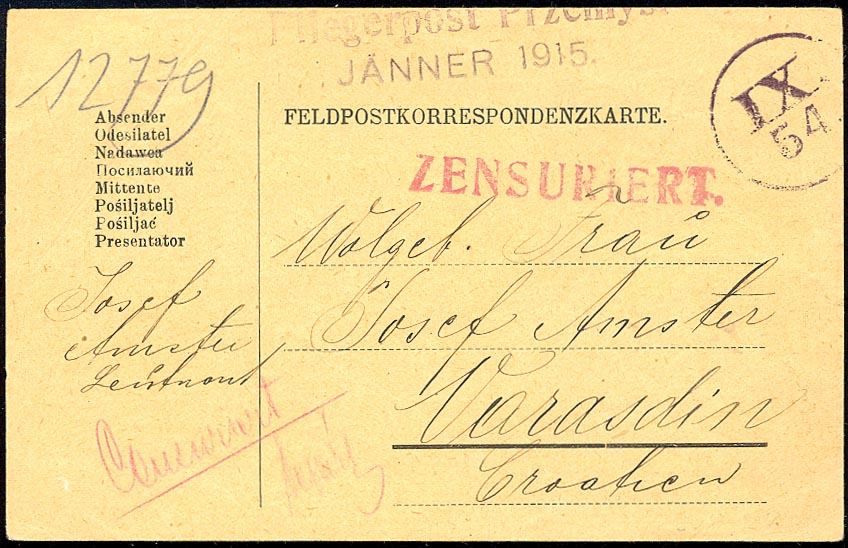 Fliegerpost Przemyśl
JÄNNER 1915.
12779
IX
54
FELDPOSTKORRESPONDENZKARTE.
ZENSURIERT.
Absender
Odesilatel
Nadawca
Посилаючий
Mittente
Pošiljatelj
Pošiljač
Presentator
Josef
Amster
Leutnant
Wolgeb. Frau
Josef Amster
Varasdin
Croatien